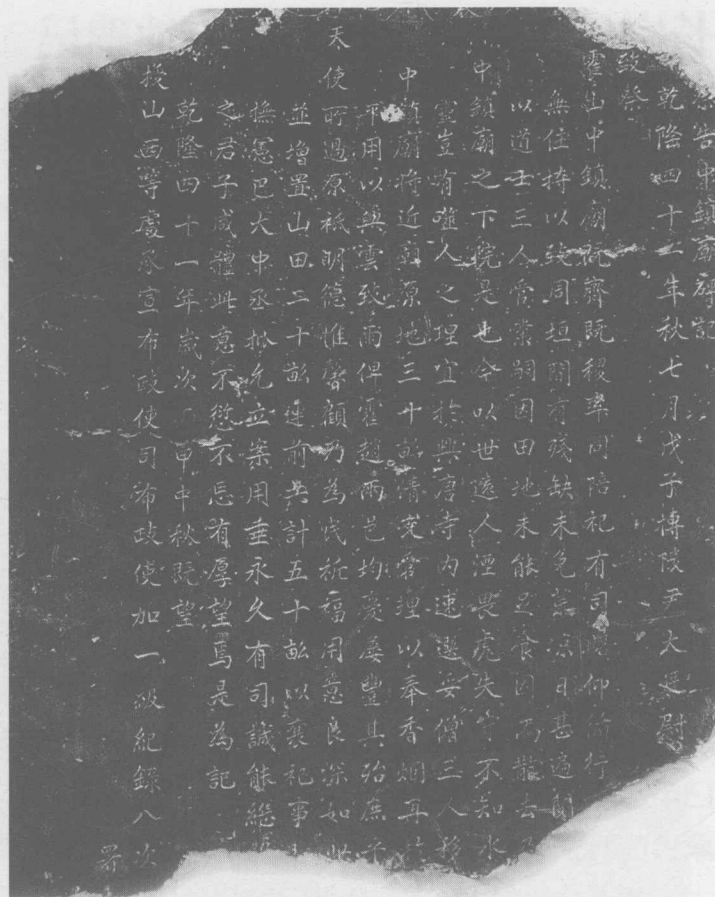 告中鎮廟碑記
乾隆四十二年秋七月戊子博陵尹大
致祭
霍山中鎮廟既齊既稷率同陪祀有司瞻仰所行
無住持以致周垣間有殘缺未免荒涼日甚適聞
以道士三人管業嗣因田地未能足食因而散去
中鎮廟之下院是也今以世遠人湮畏虎失守不知水
靈豈有噬人之理宜於興唐寺內速邀妥僧三人移
中鎮廟將近廟原地三十畝清交管理以奉香烟耳
乎用以興雲致雨俾霍趙兩邑均慶屢豐其殆庶乎
天使所過原祇明德惟馨顧乃為民祈福用意良深如此
並增置山田二十畝連前共計五十畝以襄祀事
撫憲巴大中丞批允立案用垂永久有司誠能繼
之君子咸體此意不愆不忘有厚望焉是為記
乾隆四十一年歲次 申中秋既望
授山西等處承宣布政使司布政使加一級紀錄八次